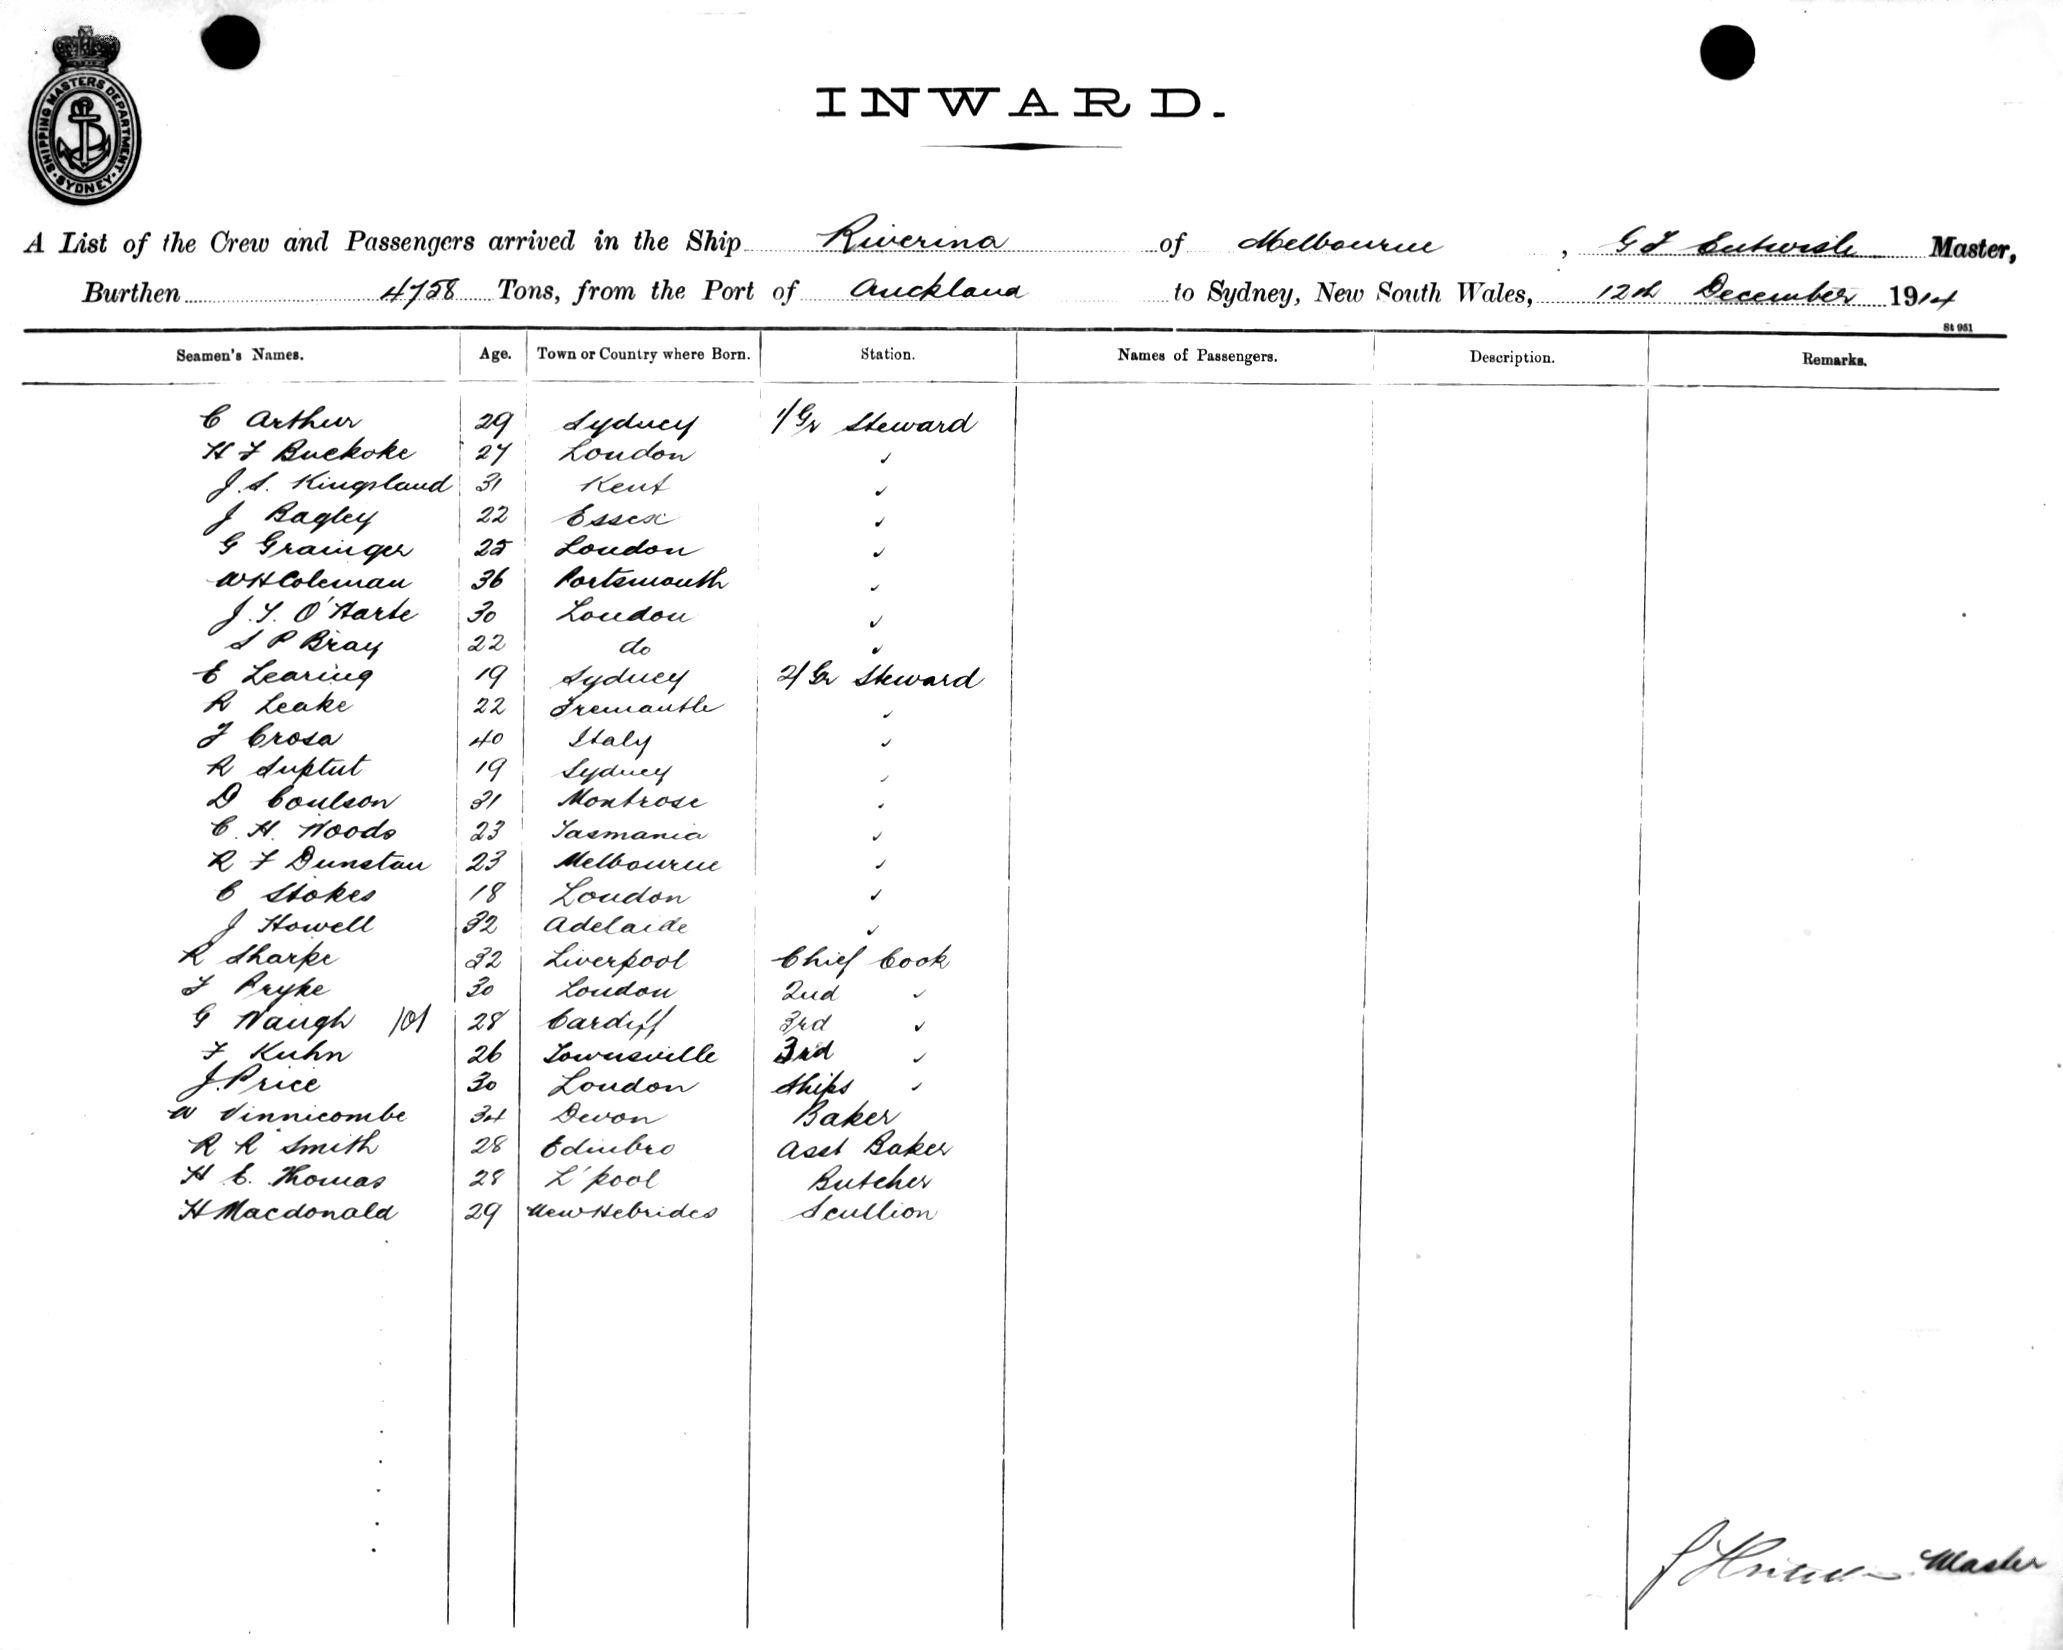 SHIPPING MASTERS DEPARTMENT
SYDNEY
INWARD.
A List of the Crew and Passengers arrived in the Ship Riverina of Melbourne, G F Entwisle Master,
Burthen 4758 Tons, from the Port of Auckland to Sydney, New South Wales, 12th December 1914
St 951
Seamen's Names. Age. Town or Country where Born. Station. Names of Passengers. Description. Remarks.
C Arthur 29 Sydney 1/Gr Steward
H F Buckoke 27 London "
J. S. Kingsland 31 Kent "
J Bagley 22 Essex "
G Grainger 25 London "
W H Coleman 36 Portsmouth "
J. T. O'Harte 30 London "
S P Bray 22 do "
E Learing 19 Sydney 2/Gr Steward
R Leake 22 Fremantle "
F Crosa 40 Italy "
R Suptut 19 Sydney "
D Coulson 31 Montrose "
C. H. Woods 23 Tasmania "
R F Dunstan 23 Melbourne "
C Stokes 18 London "
J Howell 32 Adelaide "
R Sharpe 32 Liverpool Chief Cook
F Pryke 30 London 2nd "
G Waugh 101 28 Cardiff 3rd "
F Kuhn 26 Townsville 3rd "
J. Price 30 London Ships "
W Vinnicombe 34 Devon Baker
R R Smith 28 Edinbro Asst Baker
H E. Thomas 28 L'pool Butcher
H Macdonald 29 New Hebrides Scullion
Master